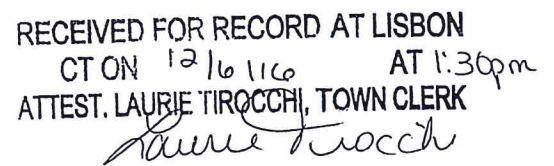 RECEIVED FOR RECORD AT LISBON
CT ON 12/6/16 AT 1:30pm
ATTEST. LAURIE TIROCCHI, TOWN CLERK
Laurie Tirocchi